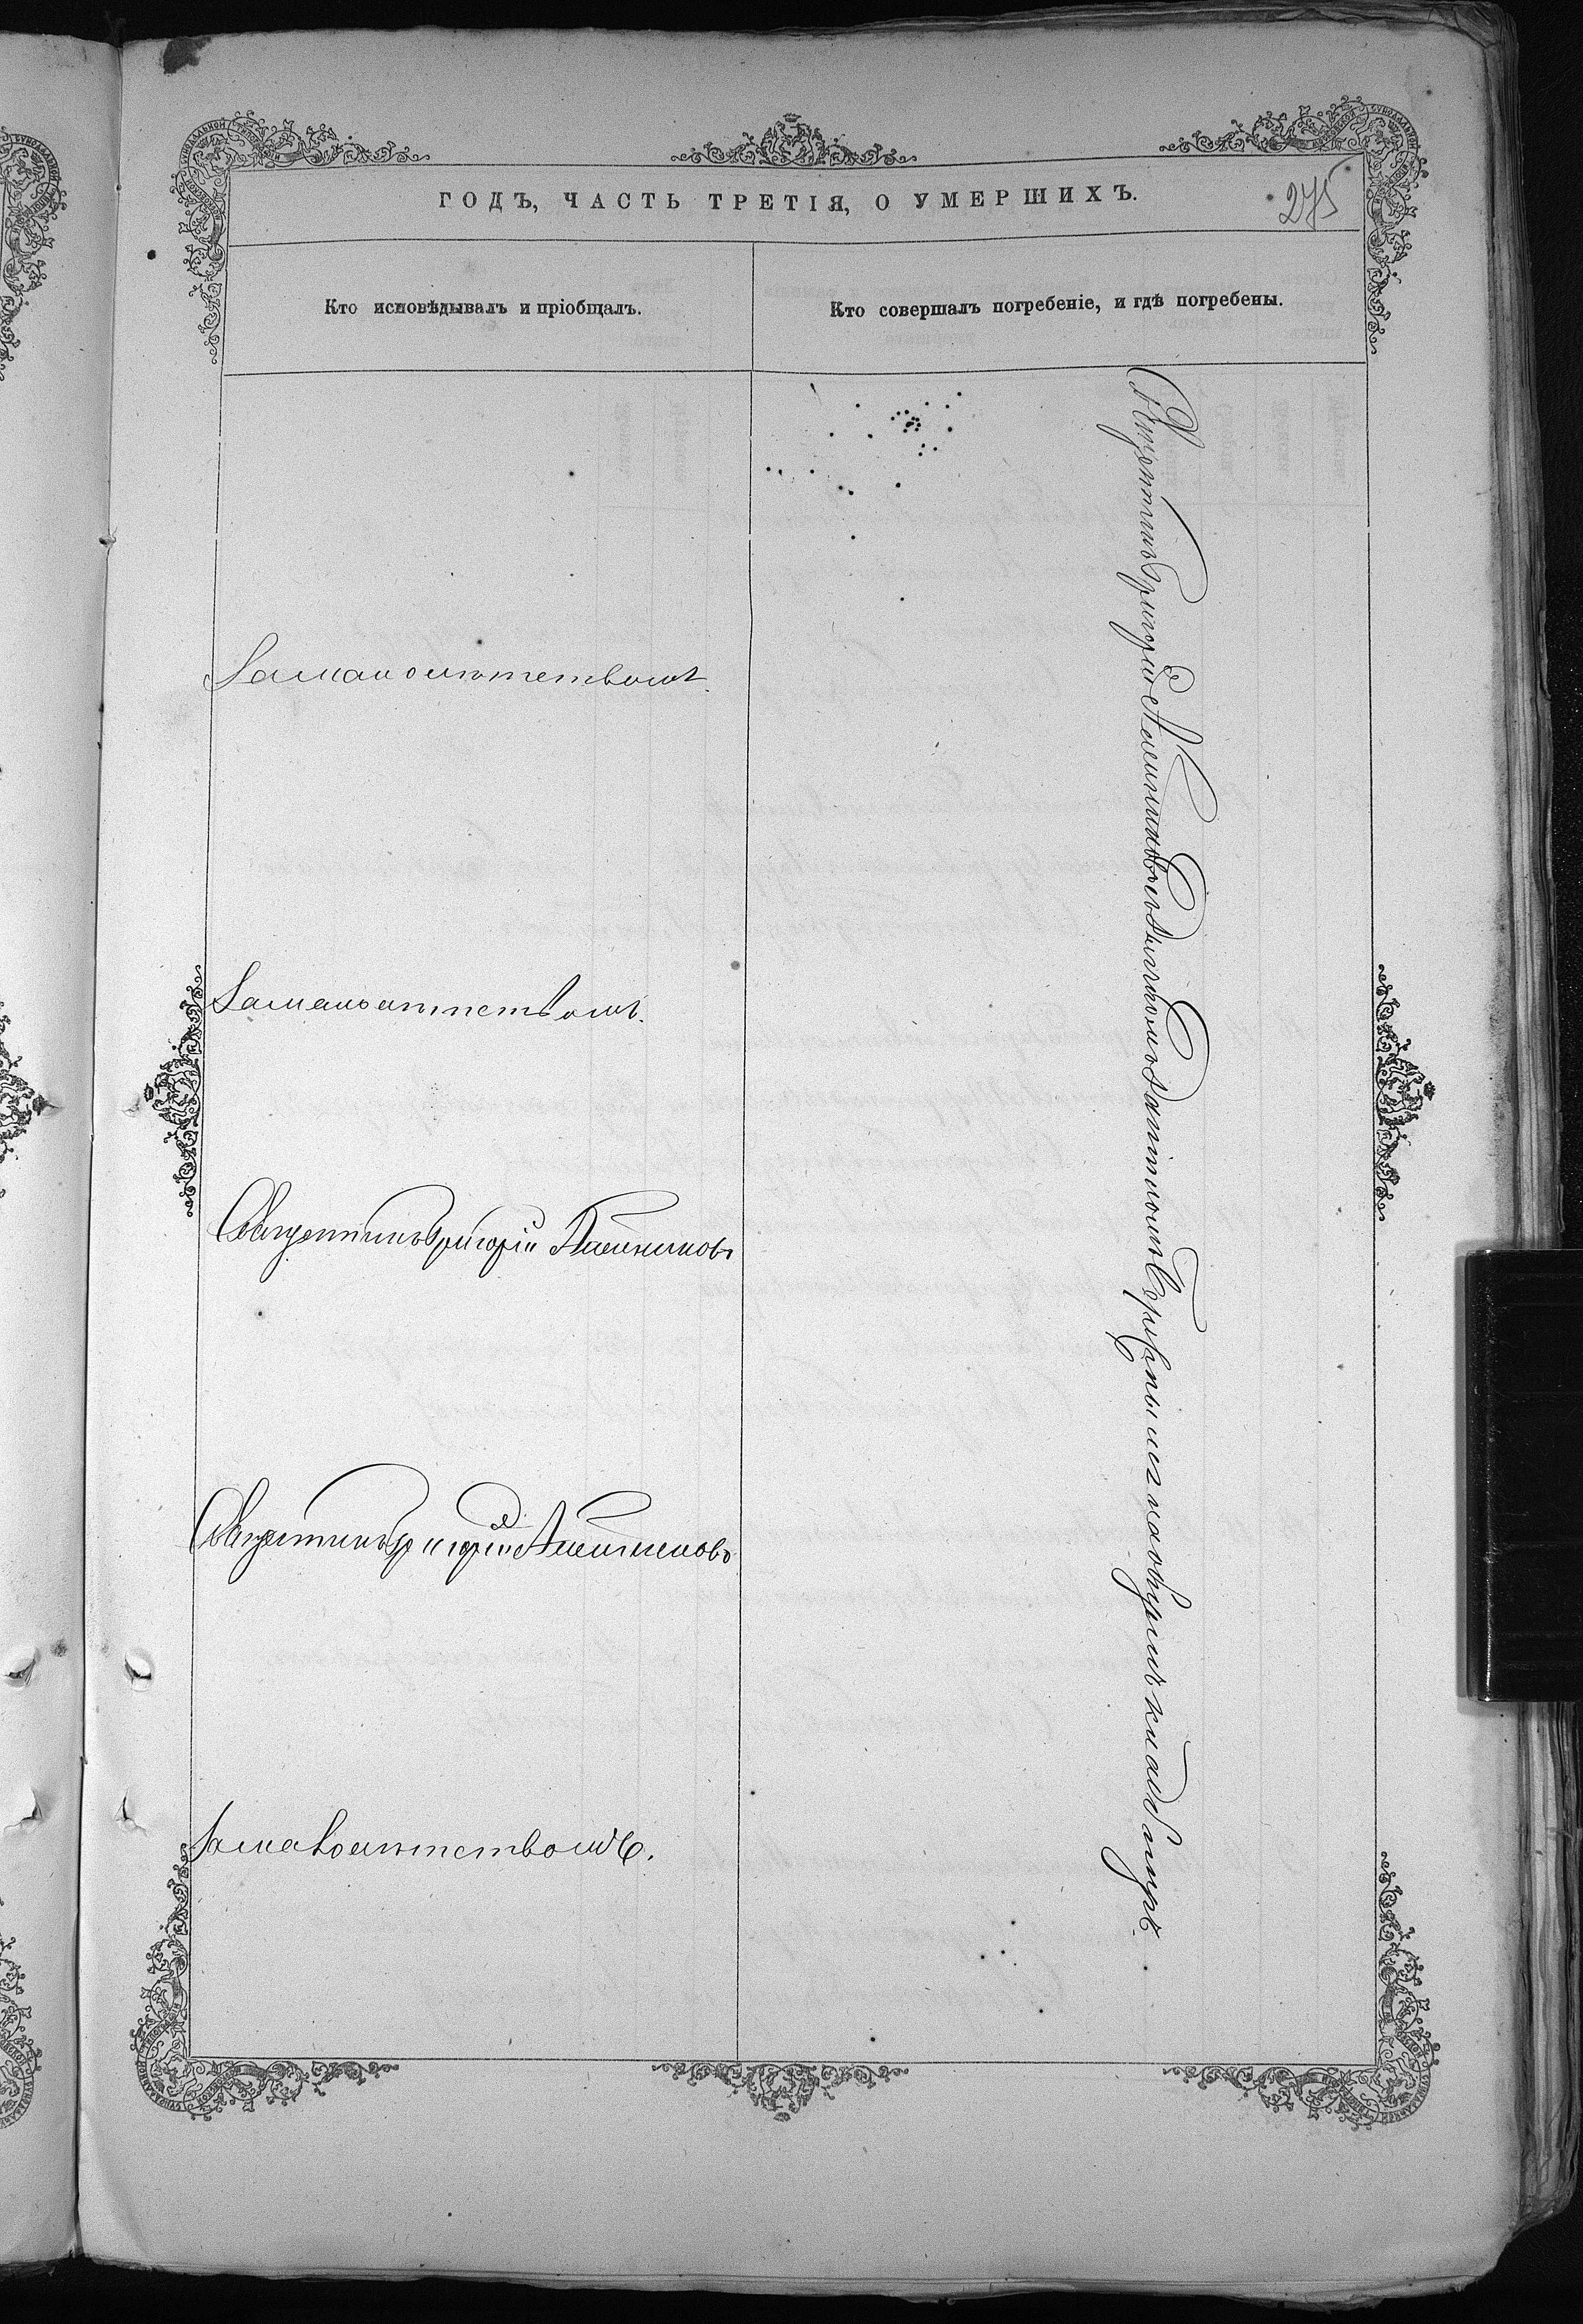 ГОДЪ, ЧАСТЬ ТРЕТІЯ, О УМЕРШИХЪ.
275
Кто исповѣдывалъ и пріобщалъ.
Кто совершалъ погребеніе, и гдѣ погребены.
За малолѣтствомъ.
За малолѣтствомъ.
Священникъ Григорій
Священникъ Григорій
За малолѣтствомъ.
Священникъ Григорій съ псаломщикомъ на кладбищѣ.